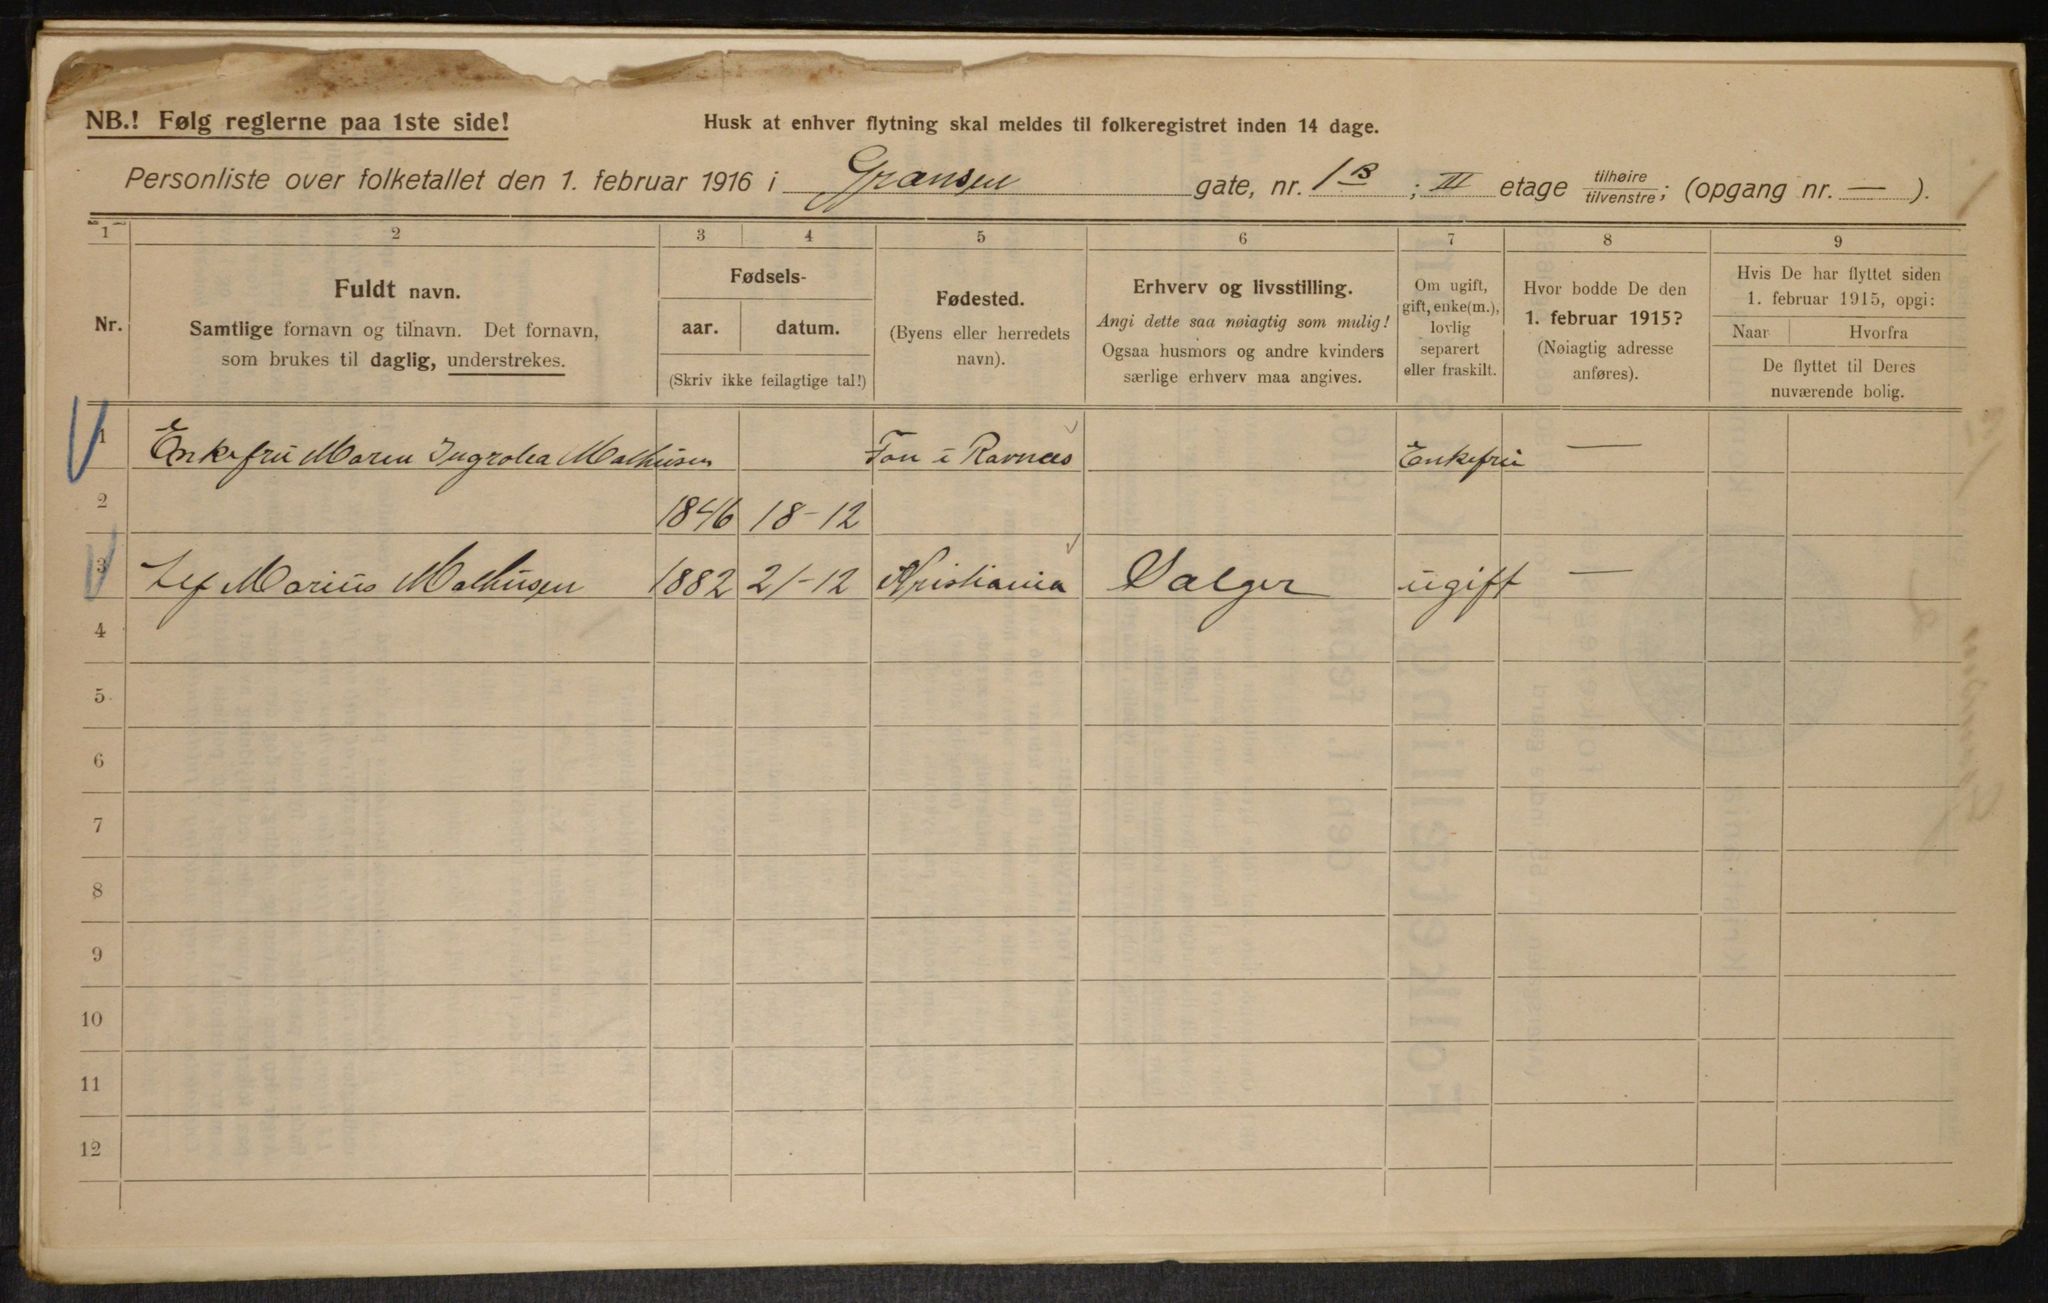 NB.! Følg reglerne paa 1ste side!
Husk at enhver flytning skal meldes til folkeregistret inden 14 dage.
Personliste over folketallet den 1. februar 1916 i Grænsen gate, nr. 1 B ; III etage tilhøire/tilvenstre; (opgang nr. — ).
1 2 3 4 5 6 7 8 9
Nr.
Fuldt navn.
Samtlige fornavn og tilnavn. Det fornavn,
som brukes til daglig, understrekes.
Fødsels-
aar. datum.
(Skriv ikke feilagtige tal!)
Fødested.
(Byens eller herredets
navn).
Erhverv og livsstilling.
Angi dette saa nøiagtig som mulig!
Ogsaa husmors og andre kvinders
særlige erhverv maa angives.
Om ugift,
gift, enke(m.),
lovlig
separert
eller fraskilt.
Hvor bodde De den
1. februar 1915?
(Nøiagtig adresse
anføres).
Hvis De har flyttet siden
1. februar 1915, opgi:
Naar Hvorfra
De flyttet til Deres
nuværende bolig.
1 Enkefru Maren Mathisen i Ravnes Enkefru —
2 1846 18-12
3 Marius Mathisen 1882 21-12 Kristiania Sælger ugift —
4
5
6
7
8
9
10
11
12